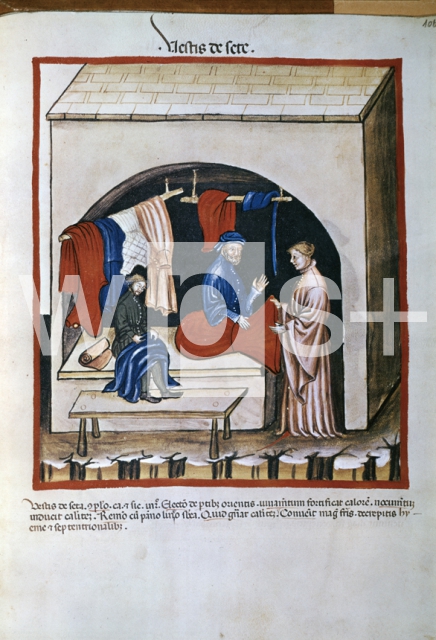 Vestis de sete.
106
wps+
Vestis de seta. ꝯplo. ca. ⁊ sic. in. Electo de ptibr orientis. iuuamentum fortificat calorē. nocumentum
inducit calitez. Remo cū pāno lineo sbea. Quid gñat calitez. Conuenit mag fris. decrepitis hy-
eme ⁊ septentrionalibz.